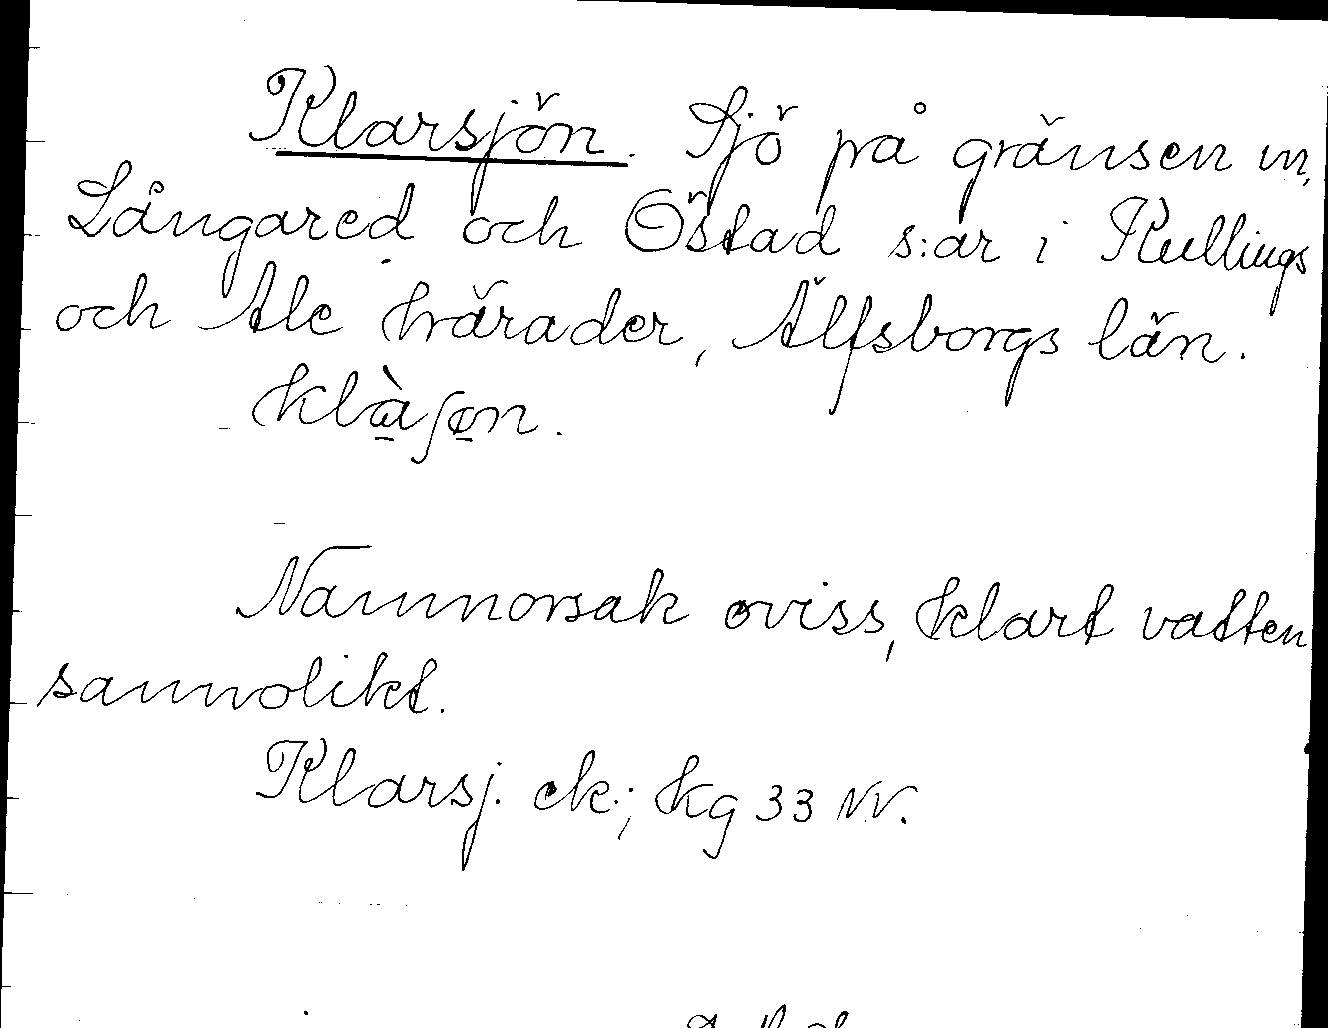 Klarsjön. Sjö på gränsen m.
Långared och Östad s:ar i Kullings
och Ale härader, Älfsborgs län.
Namnorsak oviss, klart vatten
sannolikt.
Klarsj. ek.; kg 33 NV.